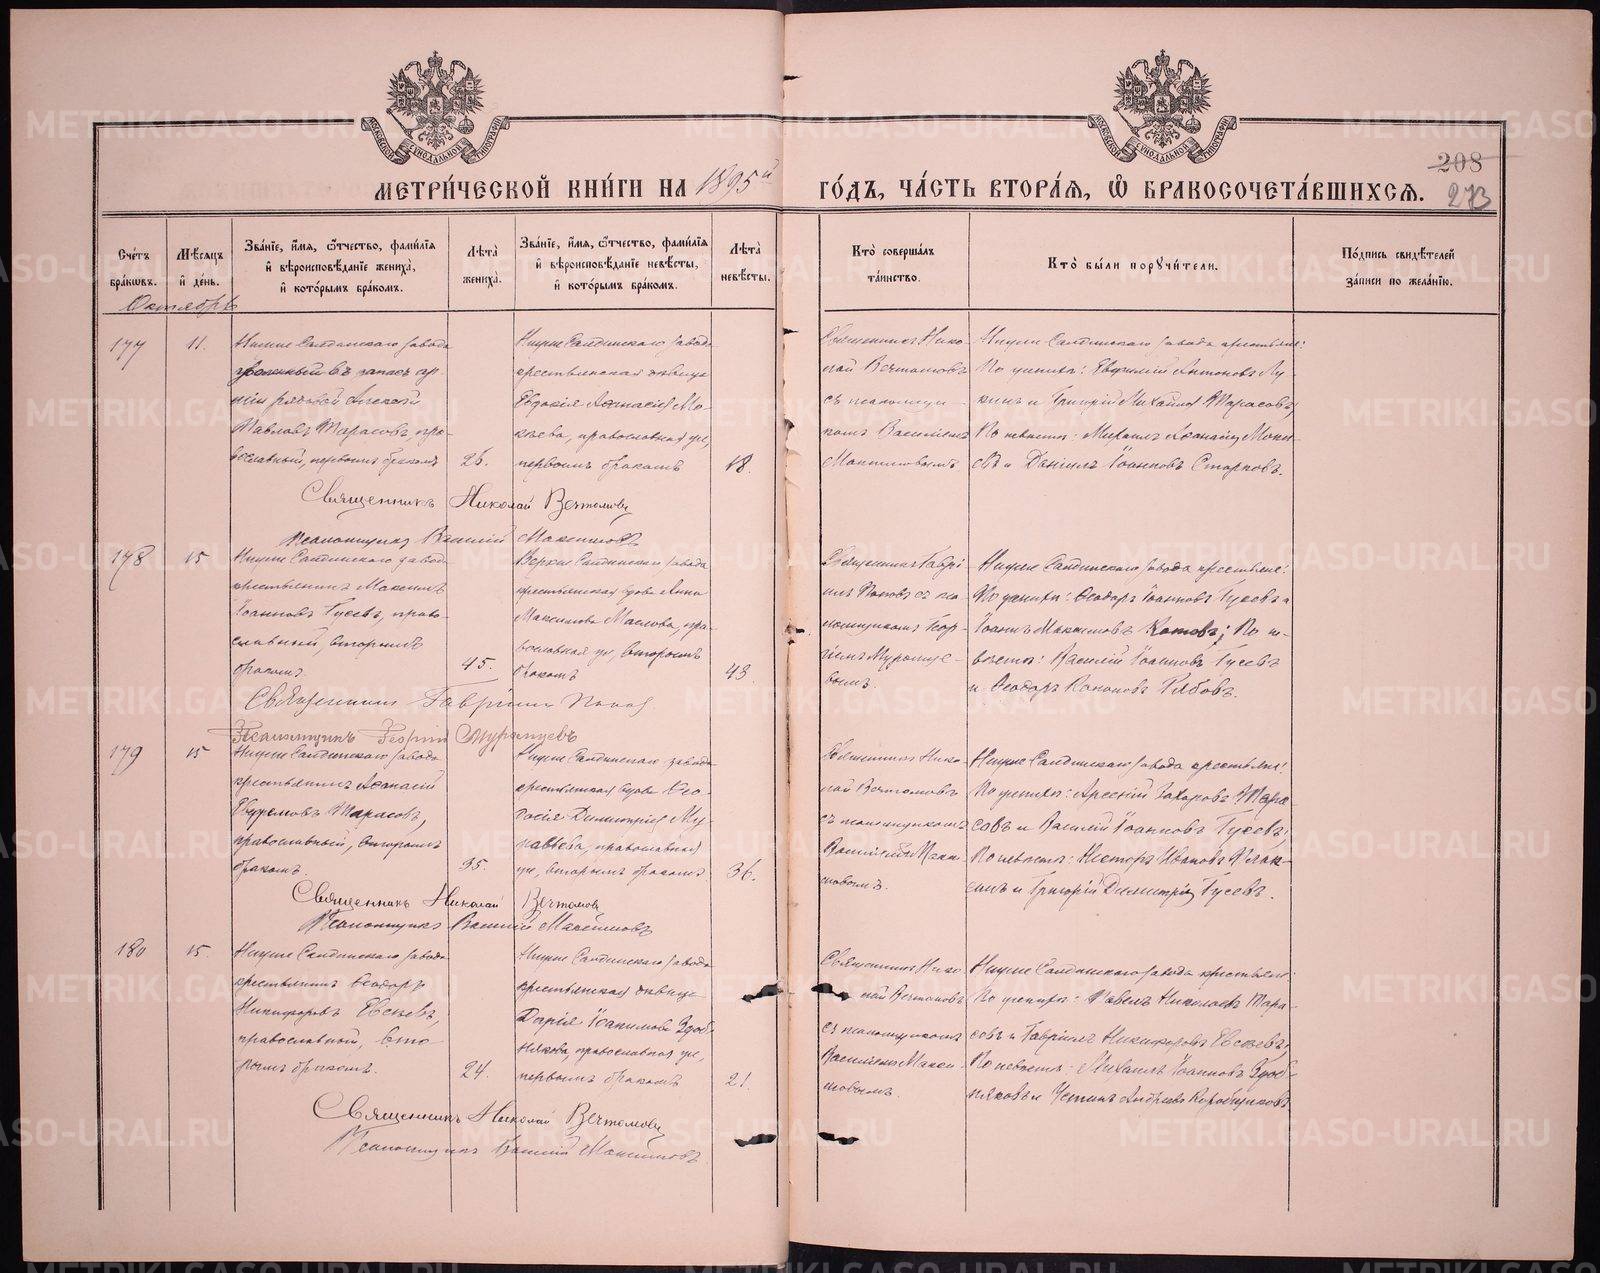 МЕТРИ́ЧЕСКОЙ КНИ́ГИ НА 1895й
ГО́ДЪ, ЧА́СТЬ ВТОРА́Я, Ѡ҆ БРАКОСОЧЕТА́ВШИХСЯ.
208
273
Сче́тъ бра́кѡвъ.
Мѣ́сяцъ и҆ де́нь.
Зва́нїе, и҆́мя, ѻ҆́тчество, фами́лїя и҆ вѣроисповѣ́данїе жениха̀, и҆ кото́рымъ бра́комъ.
Лѣ́та жениха̀.
Зва́нїе, и҆́мя, ѻ҆́тчество, фами́лїя и҆ вѣроисповѣ́данїе невѣ́сты, и҆ кото́рымъ бра́комъ.
Лѣ́та невѣ́сты.
Кто̀ соверша́лъ та́инство.
Кто̀ бы́ли порꙋчи́тели.
По́дпись свидѣ́телей за́писи по жела́нїю.
Октябрь
177
11.
Нижне Салдинскаго завода
въ запасъ ар
міи рядовой Алексей
Павловъ Тарасовъ, пра-
вославный, первымъ бракомъ
26.
Нижне Салдинскаго завода
крестьянская дѣвица
Евдокія Аѳанасіева Мо-
кѣева, православная же,
первымъ бракомъ
18.
Священникъ Нико-
лай Вечтомовъ
съ псаломщи-
комъ Василіемъ
Максимовымъ
Нижне Салдинскаго завода крестьяне:
По женихѣ: Евфимій Антоновъ Лу-
кинъ и Григорій Михайловъ Тарасовъ,
По невѣстѣ: Михаилъ Аѳанасіевъ Моки-
евъ и Даніилъ Іоанновъ Старковъ.
Священникъ Николай Вечтомовъ
Псаломщикъ Василій Максимовъ
178
15
Нижне Салдинскаго завода
крестьянинъ Максимъ
Іоанновъ Гусевъ, право-
славный, вторымъ
бракомъ
45.
Верхне Салдинскаго завода
крестьянская вдова Анна
Максимова Маслова, пра-
вославная же, вторымъ
бракомъ
43
Священникъ Гаврі
илъ Поповъ съ пса
ломщикомъ Геор-
гіемъ Мурзице-
вымъ.
Нижне Салдинскаго завода крестьяне:
По женихѣ: Ѳеодоръ Іоанновъ Гусевъ и
Іоаннъ Максимовъ Котовъ; По не-
вѣстѣ: Василій Іоанновъ Гусевъ
и Ѳеодоръ Кононовъ Рябовъ.
Священникъ Гавріилъ Поповъ
Псаломщикъ Георгій Мурзицевъ
179
15
Нижне Салдинскаго завода
крестьянинъ Аѳанасій
Евфимовъ Тарасовъ,
православный, вторымъ
бракомъ.
35.
Нижне Салдинскаго завода
крестьянская вдова Ѳео-
досія Димитріева Му-
православная
же, вторымъ бракомъ.
36.
Священникъ Нико-
лай Вечтомовъ
съ псаломщикомъ
Василіемъ Макси-
мовымъ.
Нижне Салдинскаго завода крестьяне:
По женихѣ: Арсеній Захаровъ Тара-
совъ и Василій Іоанновъ Гусевъ;
По невѣстѣ: Несторъ Ивановъ
и Григорій Димитріевъ Гусевъ.
Священникъ Николай Вечтомовъ
Псаломщикъ Василій Максимовъ
180
15.
Нижне Салдинскаго завода
крестьянинъ Ѳеодоръ
Никифоровъ Евсѣевъ,
православный, вто
рымъ бракомъ.
24.
Нижне Салдинскаго завода
крестьянская дѣвица
Дарія Іоакимова Здоб-
някова, православная же,
первымъ бракомъ
21.
Священникъ Нико
лай Вечтомовъ
съ псаломщикомъ
Василіемъ Макси
мовымъ.
Нижне Салдинскаго завода крестьяне:
По женихѣ: Павелъ Николаевъ Тара-
совъ и Гавріилъ Никифоровъ Евсѣевъ;
По невѣстѣ: Михаилъ Іоанновъ Здоб-
няковъ и Устинъ Андреевъ Коробщиковъ
Священникъ Николай Вечтомовъ
Псаломщикъ Василій Максимовъ
METRIKI.GASO-URAL.RU